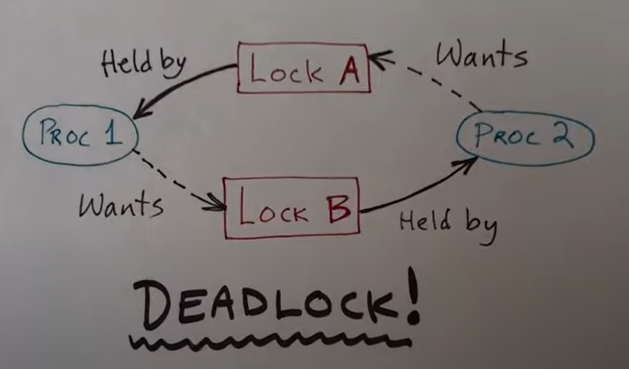 Held by
Lock A
Wants
Proc 1
Proc 2
Wants
Lock B
Held by
DEADLOCK!